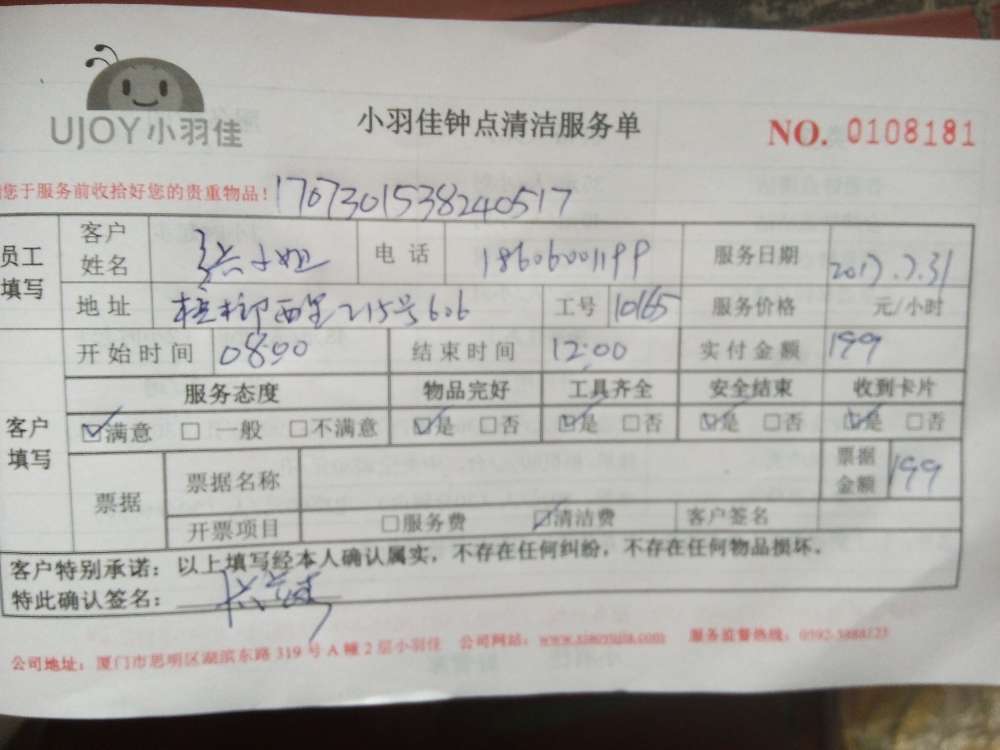 UJOY小羽佳
小羽佳钟点清洁服务单
NO. 0108181
您于服务前收拾好您的贵重物品! 1707301538240517
员工填写 客户姓名 小姐 电话 18606001199 服务日期 2017.7.31
地址 槟榔西里215号606 工号 10165 服务价格 元/小时
客户填写 开始时间 08:00 结束时间 12:00 实付金额 199
服务态度 物品完好 工具齐全 安全结束 收到卡片
☑满意 □一般 □不满意 ☑是 □否 ☑是 □否 ☑是 □否 ☑是 □否
票据 票据名称 票据金额 199
开票项目 □服务费 ☑清洁费 客户签名
客户特别承诺：以上填写经本人确认属实，不存在任何纠纷，不存在任何物品损坏。
特此确认签名：
公司地址：厦门市思明区湖滨东路319号A幢2层小羽佳 公司网站： 服务监督热线：